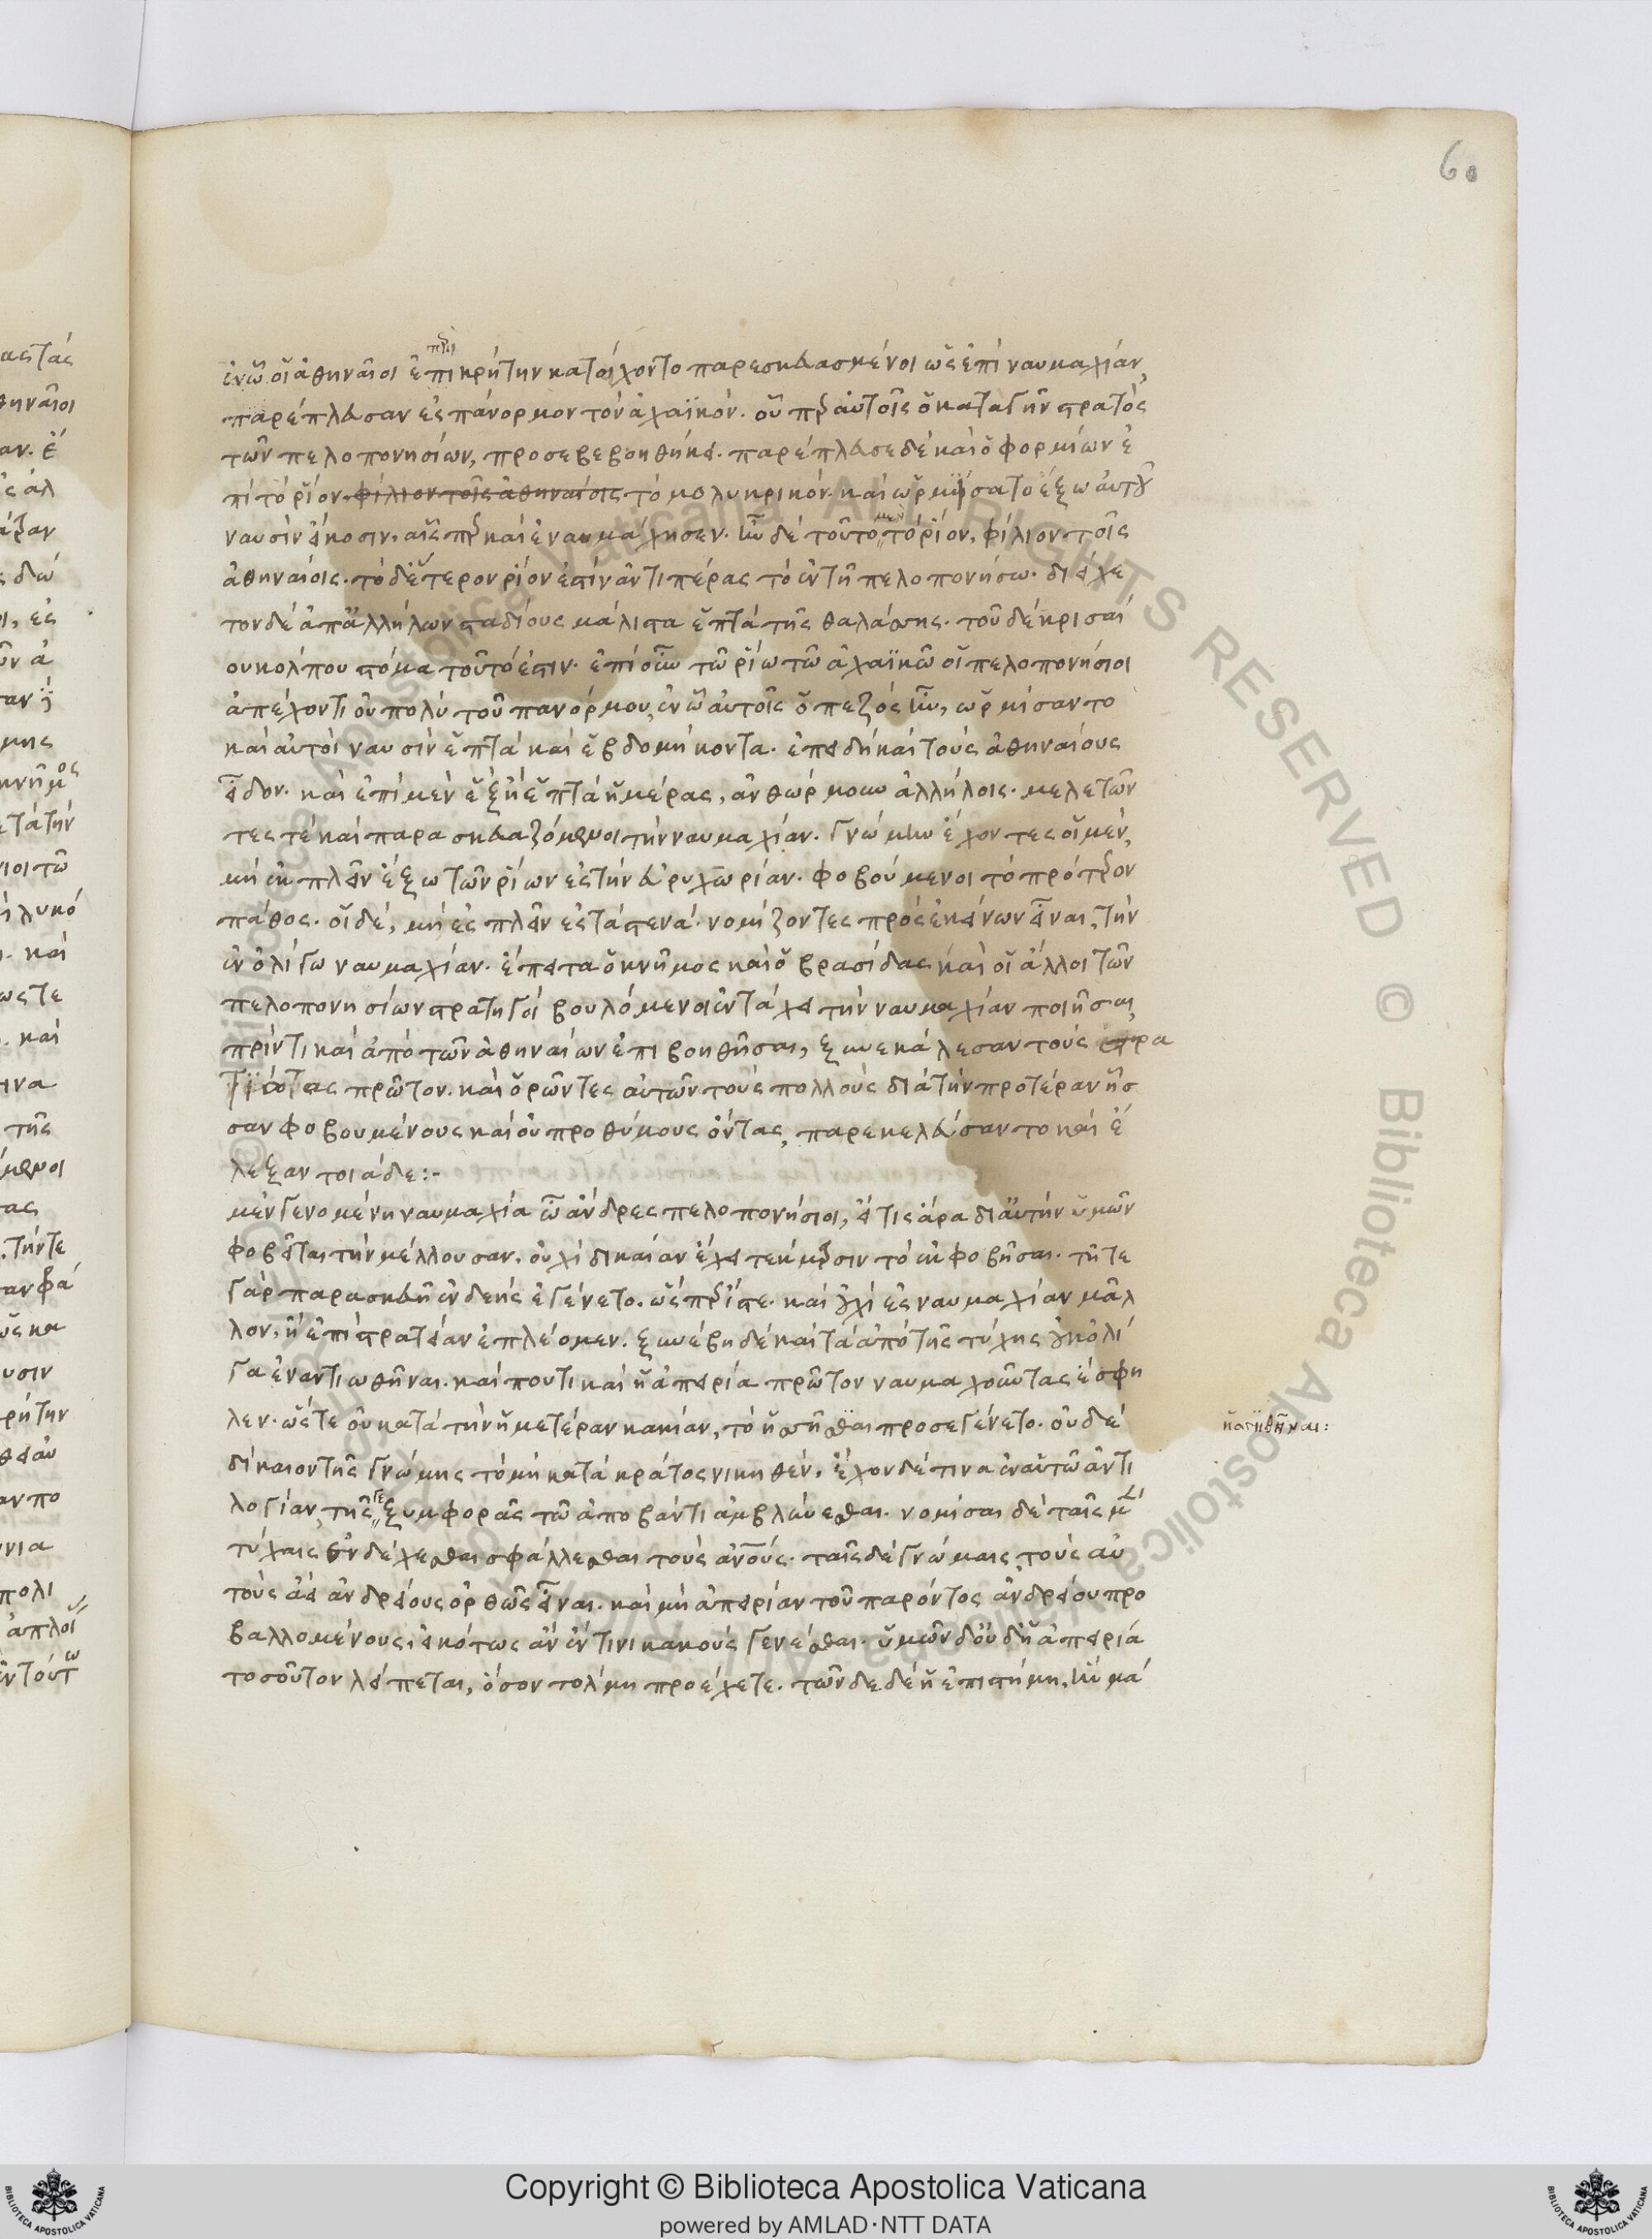 60
περὶ
ἐν ᾧ οἱ ἀθηναῖοι ἐπὶ κρήτην κατείχοντο παρεσκευασμένοι ὡς ἐπὶ ναυμαχίαν,
παρέπλευσαν ἐς πάνορμον τὸν ἀχαϊκόν. οὗπερ αὐτοῖς ὁ κατὰ γῆν στρατὸς
τῶν πελοπονησίων, προσεβεβοηθήκει. παρέπλευσε δὲ καὶ ὁ φορμίων ἐ
πὶ τὸ ῥίον φίλιον τοῖς ἀθηναίοις τὸ μολυκρικόν. καὶ ὡρμίσατο ἔξω αὐτοῦ
ναυσὶν εἴκοσιν. αἷσπερ καὶ ἐναυμάχησεν. ἦν δὲ τοῦτο μὲν τὸ ῥίον, φίλιον τοῖς
ἀθηναίοις. τὸ δ' ἕτερον ῥίον ἐστὶν ἀντιπέρας τὸ ἐν τῇ πελοπονήσω. διείχε
τον δὲ ἀπ' ἀλλήλων σταδίους μάλιστα ἑπτὰ τῆς θαλάσσης. τοῦ δὲ κρισαί
ου κόλπου στόμα τοῦτό ἐστιν. ἐπὶ οὖν τῷ ῥίω τῷ ἀχαϊκῷ οἱ πελοπονήσιοι
ἀπέχοντι οὐ πολὺ τοῦ πανόρμου, ἐν ᾧ αὐτοῖς ὁ πεζὸς ἦν, ὡρμίσαντο
καὶ αὐτοὶ ναυσὶν ἑπτὰ καὶ ἑβδομήκοντα. ἐπειδὴ καὶ τοὺς ἀθηναίους
εἶδον. καὶ ἐπὶ μὲν ἓξ ἢ ἑπτὰ ἡμέρας, ἀνθώρμουν ἀλλήλοις. μελετῶν
τες τὲ καὶ παρασκευαζόμενοι τὴν ναυμαχίαν. γνώμην ἔχοντες οἱ μὲν,
μὴ ἐκπλεῖν ἔξω τῶν ῥίων ἐς τὴν εὐρυχωρίαν. φοβούμενοι τὸ πρότερον
πάθος. οἱ δὲ, μὴ ἐσπλεῖν ἐς τὰ στενά. νομίζοντες πρὸς ἐκείνων εἶναι, τὴν
ἐν ὀλίγω ναυμαχίαν. ἔπειτα ὁ κνῆμος καὶ ὁ βρασίδας καὶ οἱ ἄλλοι τῶν
πελοπονησίων στρατηγοὶ βουλόμενοι ἐν τάχει τὴν ναυμαχίαν ποιῆσαι,
πρίν τι καὶ ἀπὸ τῶν ἀθηναίων ἐπιβοηθῆσαι, ξυνεκάλεσαν τοὺς στρα
τιώτας πρῶτον. καὶ ὁρῶντες αὐτῶν τοὺς πολλοὺς διὰ τὴν προτέραν ἧσ
σαν φοβουμένους καὶ οὐ προθύμους ὄντας, παρεκελεύσαντο καὶ ἔ
λεξαν τοιάδε:-
μὲν γενομένη ναυμαχία ὦ ἄνδρες πελοπονήσιοι, εἴ τις ἄρα δι' αὐτὴν ὑμῶν
φοβεῖται τὴν μέλλουσαν, οὐχὶ δικαίαν ἔχει τέκμαρσιν τὸ ἐκφοβῆσαι. τῇ τε
γὰρ παρασκευῇ ἐνδεὴς ἐγένετο. ὥσπερ ἴστε. καὶ οὐχὶ ἐς ναυμαχίαν μᾶλ
λον, ἢ ἐπὶ στρατείαν ἐπλέομεν. ξυνέβη δὲ καὶ τὰ ἀπὸ τῆς τύχης οὐκ ὀλί
γα ἐναντιωθῆναι. καὶ πού τι καὶ ἡ ἀπειρία πρῶτον ναυμαχοῦντας ἔσφη
λεν. ὥστε οὐ κατὰ τὴν ἡμετέραν κακίαν, τὸ ἡσσῆσθαι προσεγένετο. οὐδὲ
ἡσσηθῆναι:
δίκαιον τῆς γνώμης τὸ μὴ κατὰ κράτος νικηθέν, ἔχον δέ τινα ἐν αὑτῷ ἀντι
λογίαν, τῆς γε ξυμφορᾶς τῷ ἀποβάντι ἀμβλύνεσθαι. νομίσαι δὲ ταῖς μὲν
τύχαις ἐνδέχεσθαι σφάλλεσθαι τοὺς ἀνους. ταῖς δὲ γνώμαις, τοὺς αὐ
τοὺς ἀεὶ ἀνδρείους ὀρθῶς εἶναι. καὶ μὴ ἀπειρίαν τοῦ παρόντος ἀνδρείου προ
βαλλομένους, εἰκότως ἂν ἔν τινι κακοὺς γενέσθαι. ὑμῶν δ' οὐδ' ἡ ἀπειρία
τοσοῦτον λείπεται, ὅσον τόλμη προέχετε. τῶνδε δὲ ἡ ἐπιστήμη, ἣν μά
Copyright © Biblioteca Apostolica Vaticana
powered by AMLAD·NTT DATA